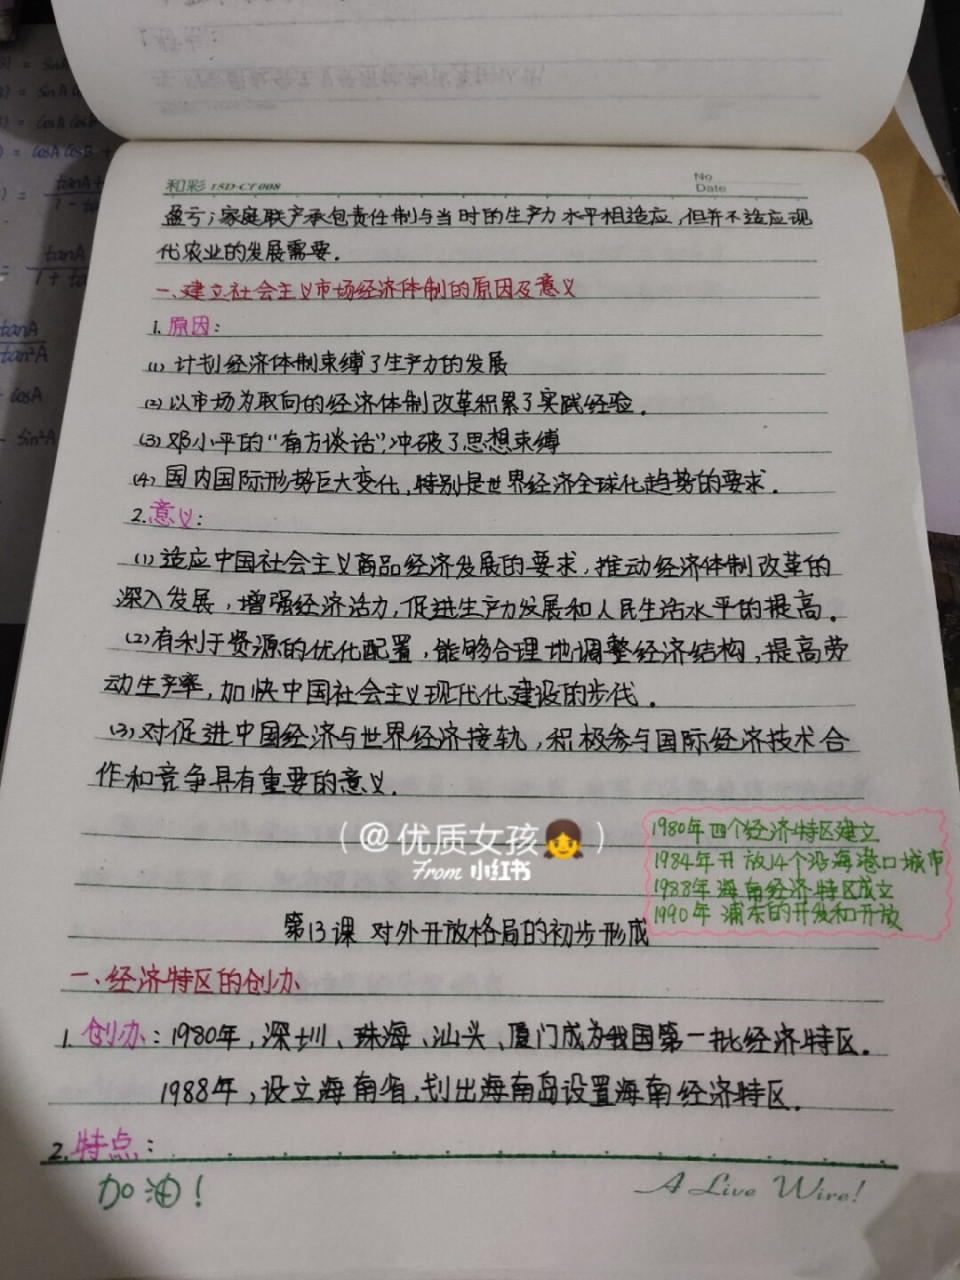 和彩 15D-CY008
No
Date
盈亏；家庭联产承包责任制与当时的生产力水平相适应，但并不适应现
代农业的发展需要．
一、建立社会主义市场经济体制的原因及意义
1. 原因：
(1) 计划经济体制束缚了生产力的发展
(2) 以市场为取向的经济体制改革积累了实践经验．
(3) 邓小平的“南方谈话”，冲破了思想束缚
(4) 国内国际形势巨大变化，特别是世界经济全球化趋势的要求．
2. 意义：
(1) 适应中国社会主义商品经济发展的要求，推动经济体制改革的
深入发展，增强经济活力，促进生产力发展和人民生活水平的提高．
(2) 有利于资源的优化配置，能够合理地调整经济结构，提高劳
动生产率，加快中国社会主义现代化建设的步伐．
(3) 对促进中国经济与世界经济接轨，积极参与国际经济技术合
作和竞争具有重要的意义．
(@优质女孩👧)
From 小红书
1980年四个经济特区建立
1984年开放14个沿海港口城市
1988年海南经济特区成立
1990年浦东的开发和开放
第13课 对外开放格局的初步形成
一、经济特区的创办
1. 创办：1980年，深圳、珠海、汕头、厦门成为我国第一批经济特区．
1988年，设立海南省，划出海南岛设置海南经济特区．
2. 特点：
加油！
A Live Wire!
tanA
1 + ta
tanA
tan²A
cosA
sin²A